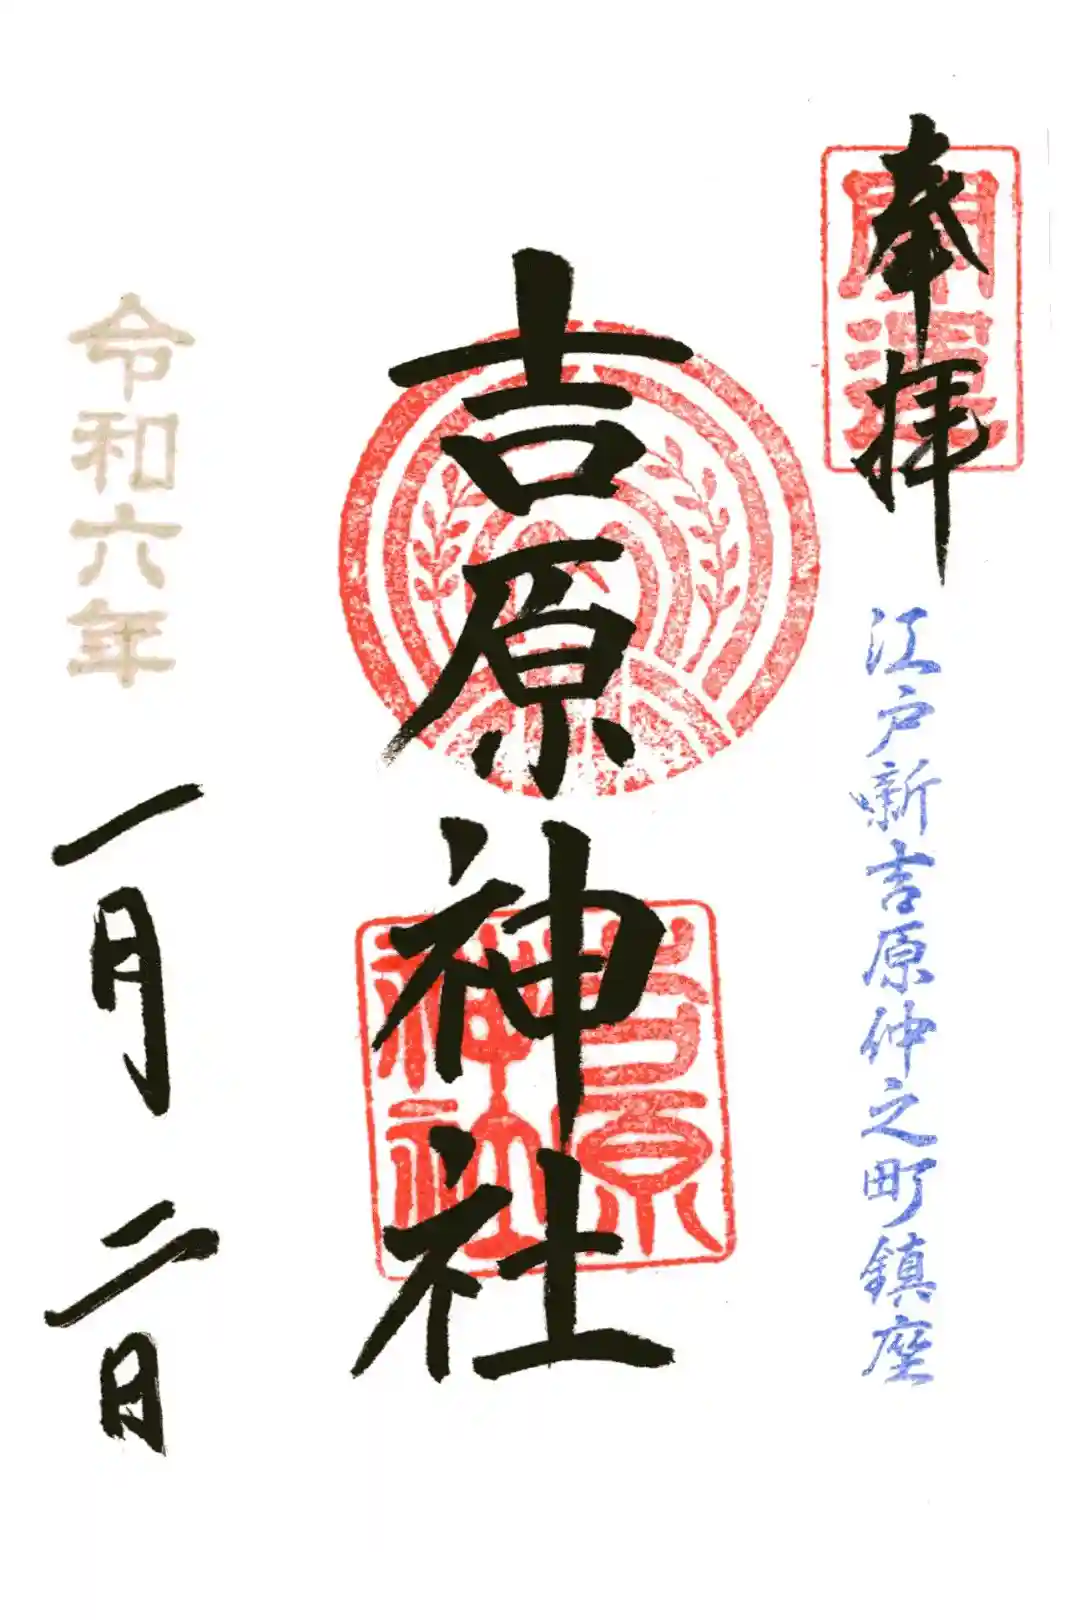 奉拝
開運
江戸新吉原仲之町鎮座
吉原神社
吉原
神社
令和六年
一月二日